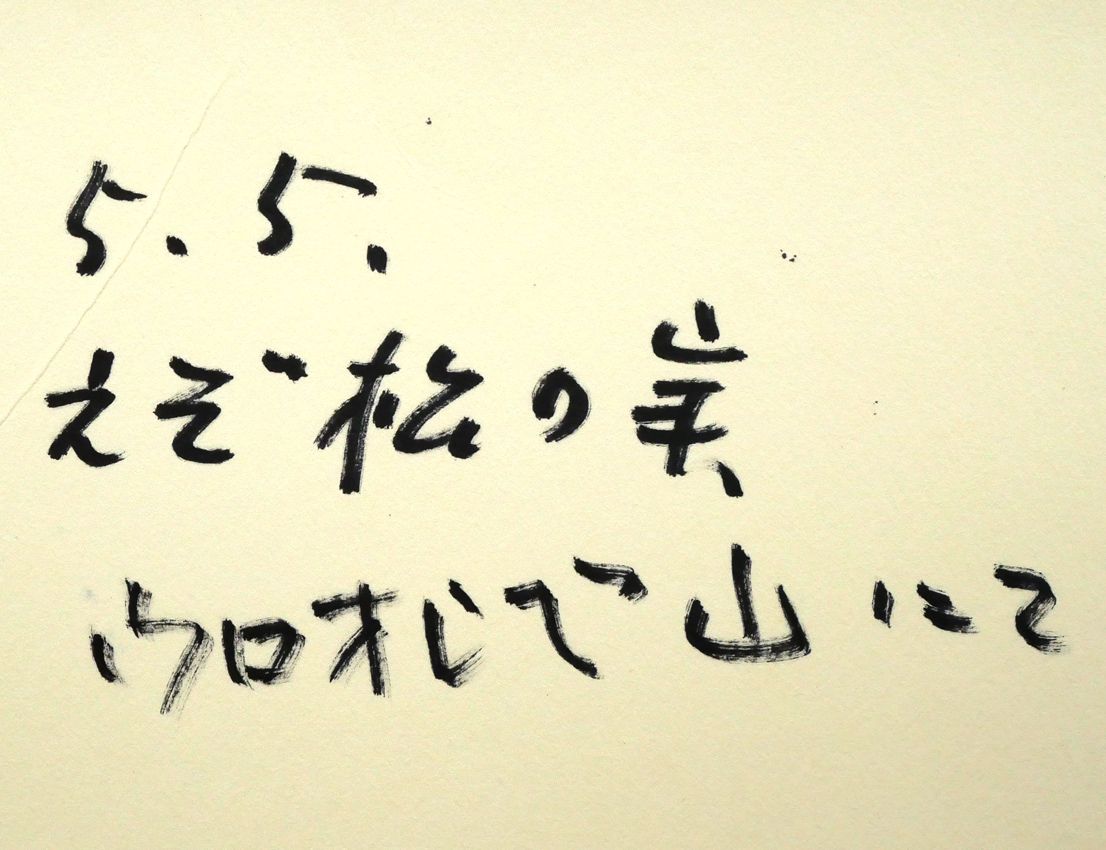 5.5.
えぞ松の実
ウロオじで山にて